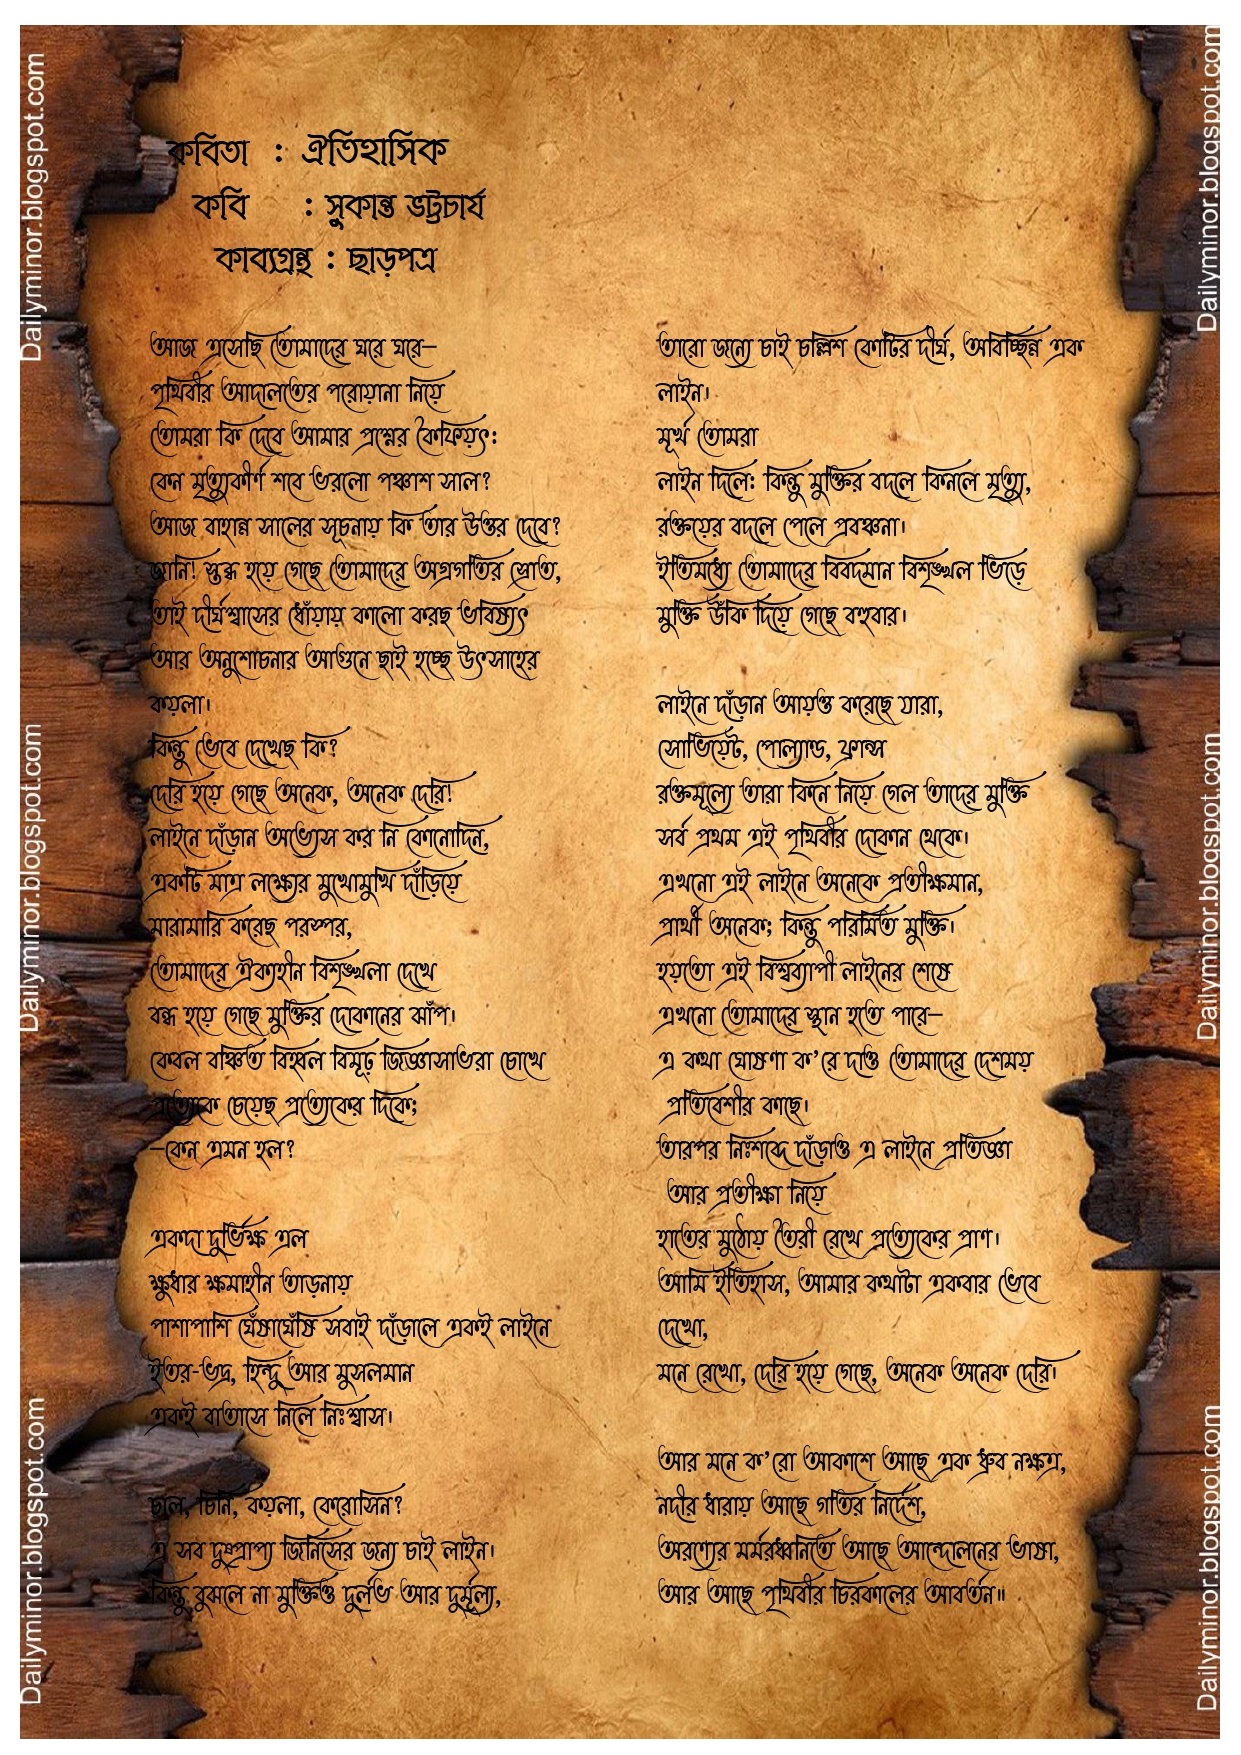 কবিতা : ঐতিহাসিক
কবি : সুকান্ত ভট্টচার্য
কাব্যগ্রন্থ : ছাড়পত্র
আজ এসেছি তোমাদের ঘরে ঘরে–
পৃথিবীর আদালতের পরোয়ানা নিয়ে
তোমরা কি দেবে আমার প্রশ্নের কৈফিয়ৎ:
কেন মৃত্যুকীর্ণ শবে ভরলো পঞ্চাশ সাল?
আজ বাহান্ন সালের সূচনায় কি তার উত্তর দেবে?
জানি! স্তব্ধ হয়ে গেছে তোমাদের অগ্রগতির স্রোত,
তাই দীর্ঘশ্বাসের ধোঁয়ায় কালো করছ ভবিষ্যৎ
আর অনুশোচনার আগুনে ছাই হচ্ছে উৎসাহের
কয়লা।
কিন্তু ভেবে দেখেছ কি?
দেরি হয়ে গেছে অনেক, অনেক দেরি!
লাইনে দাঁড়ান অভ্যেস কর নি কোনোদিন,
একটি মাত্র লক্ষ্যের মুখোমুখি দাঁড়িয়ে
মারামারি করেছ পরস্পর,
তোমাদের ঐক্যহীন বিশৃঙ্খলা দেখে
বন্ধ হয়ে গেছে মুক্তির দোকানের ঝাঁপ।
কেবল বঞ্চিত বিহ্বল বিমূঢ় জিজ্ঞাসাভরা চোখে
প্রত্যেকে চেয়েছ প্রত্যেকের দিকে;
–কেন এমন হল?
একদা দুর্ভিক্ষ এল
ক্ষুধার ক্ষমাহীন তাড়নায়
পাশাপাশি ঘেঁষাঘেঁষি সবাই দাঁড়ালে একই লাইনে
ইতর-ভদ্র, হিন্দু আর মুসলমান
একই বাতাসে নিলে নিঃশ্বাস।
চাল, চিনি, কয়লা, কেরোসিন?
এ সব দুষ্প্রাপ্য জিনিসের জন্য চাই লাইন।
কিন্তু বুঝলে না মুক্তিও দুর্লভ আর দুর্মূল্য,
তারো জন্যে চাই চল্লিশ কোটির দীর্ঘ, অবিচ্ছিন্ন এক
লাইন।
মূর্খ তোমরা
লাইন দিলে: কিন্তু মুক্তির বদলে কিনলে মৃত্যু,
রক্তয়ের বদলে পেলে প্রবঞ্চনা।
ইতিমধ্যে তোমাদের বিবদমান বিশৃঙ্খল ভিড়ে
মুক্তি উঁকি দিয়ে গেছে বহুবার।
লাইনে দাঁড়ান আয়ত্ত করেছে যারা,
সোভিয়েট, পোল্যান্ড, ফ্রান্স
রক্তমূল্যে তারা কিনে নিয়ে গেল তাদের মুক্তি
সর্ব প্রথম এই পৃথিবীর দোকান থেকে।
এখনো এই লাইনে অনেকে প্রতীক্ষমান,
প্রার্থী অনেক; কিন্তু পরিমিত মুক্তি।
হয়তো এই বিশ্বব্যাপী লাইনের শেষে
এখনো তোমাদের স্থান হতে পারে–
এ কথা ঘোষণা ক’রে দাও তোমাদের দেশময়
প্রতিবেশীর কাছে।
তারপর নিঃশব্দে দাঁড়াও এ লাইনে প্রতিজ্ঞা
আর প্রতীক্ষা নিয়ে
হাতের মুঠোয় তৈরী রেখে প্রত্যেকের প্রাণ।
আমি ইতিহাস, আমার কথাটা একবার ভেবে
দেখো,
মনে রেখো, দেরি হয়ে গেছে, অনেক অনেক দেরি।
আর মনে ক’রো আকাশে আছে এক ধ্রুব নক্ষত্র,
নদীর ধারায় আছে গতির নির্দেশ,
অরণ্যের মর্মরধ্বনিতে আছে আন্দোলনের ভাষা,
আর আছে পৃথিবীর চিরকালের আবর্তন॥
Dailyminor.blogspot.com
Dailyminor.blogspot.com
Dailyminor.blogspot.com
Dailyminor.blogspot.com
Dailyminor.blogspot.com
Dailyminor.blogspot.com